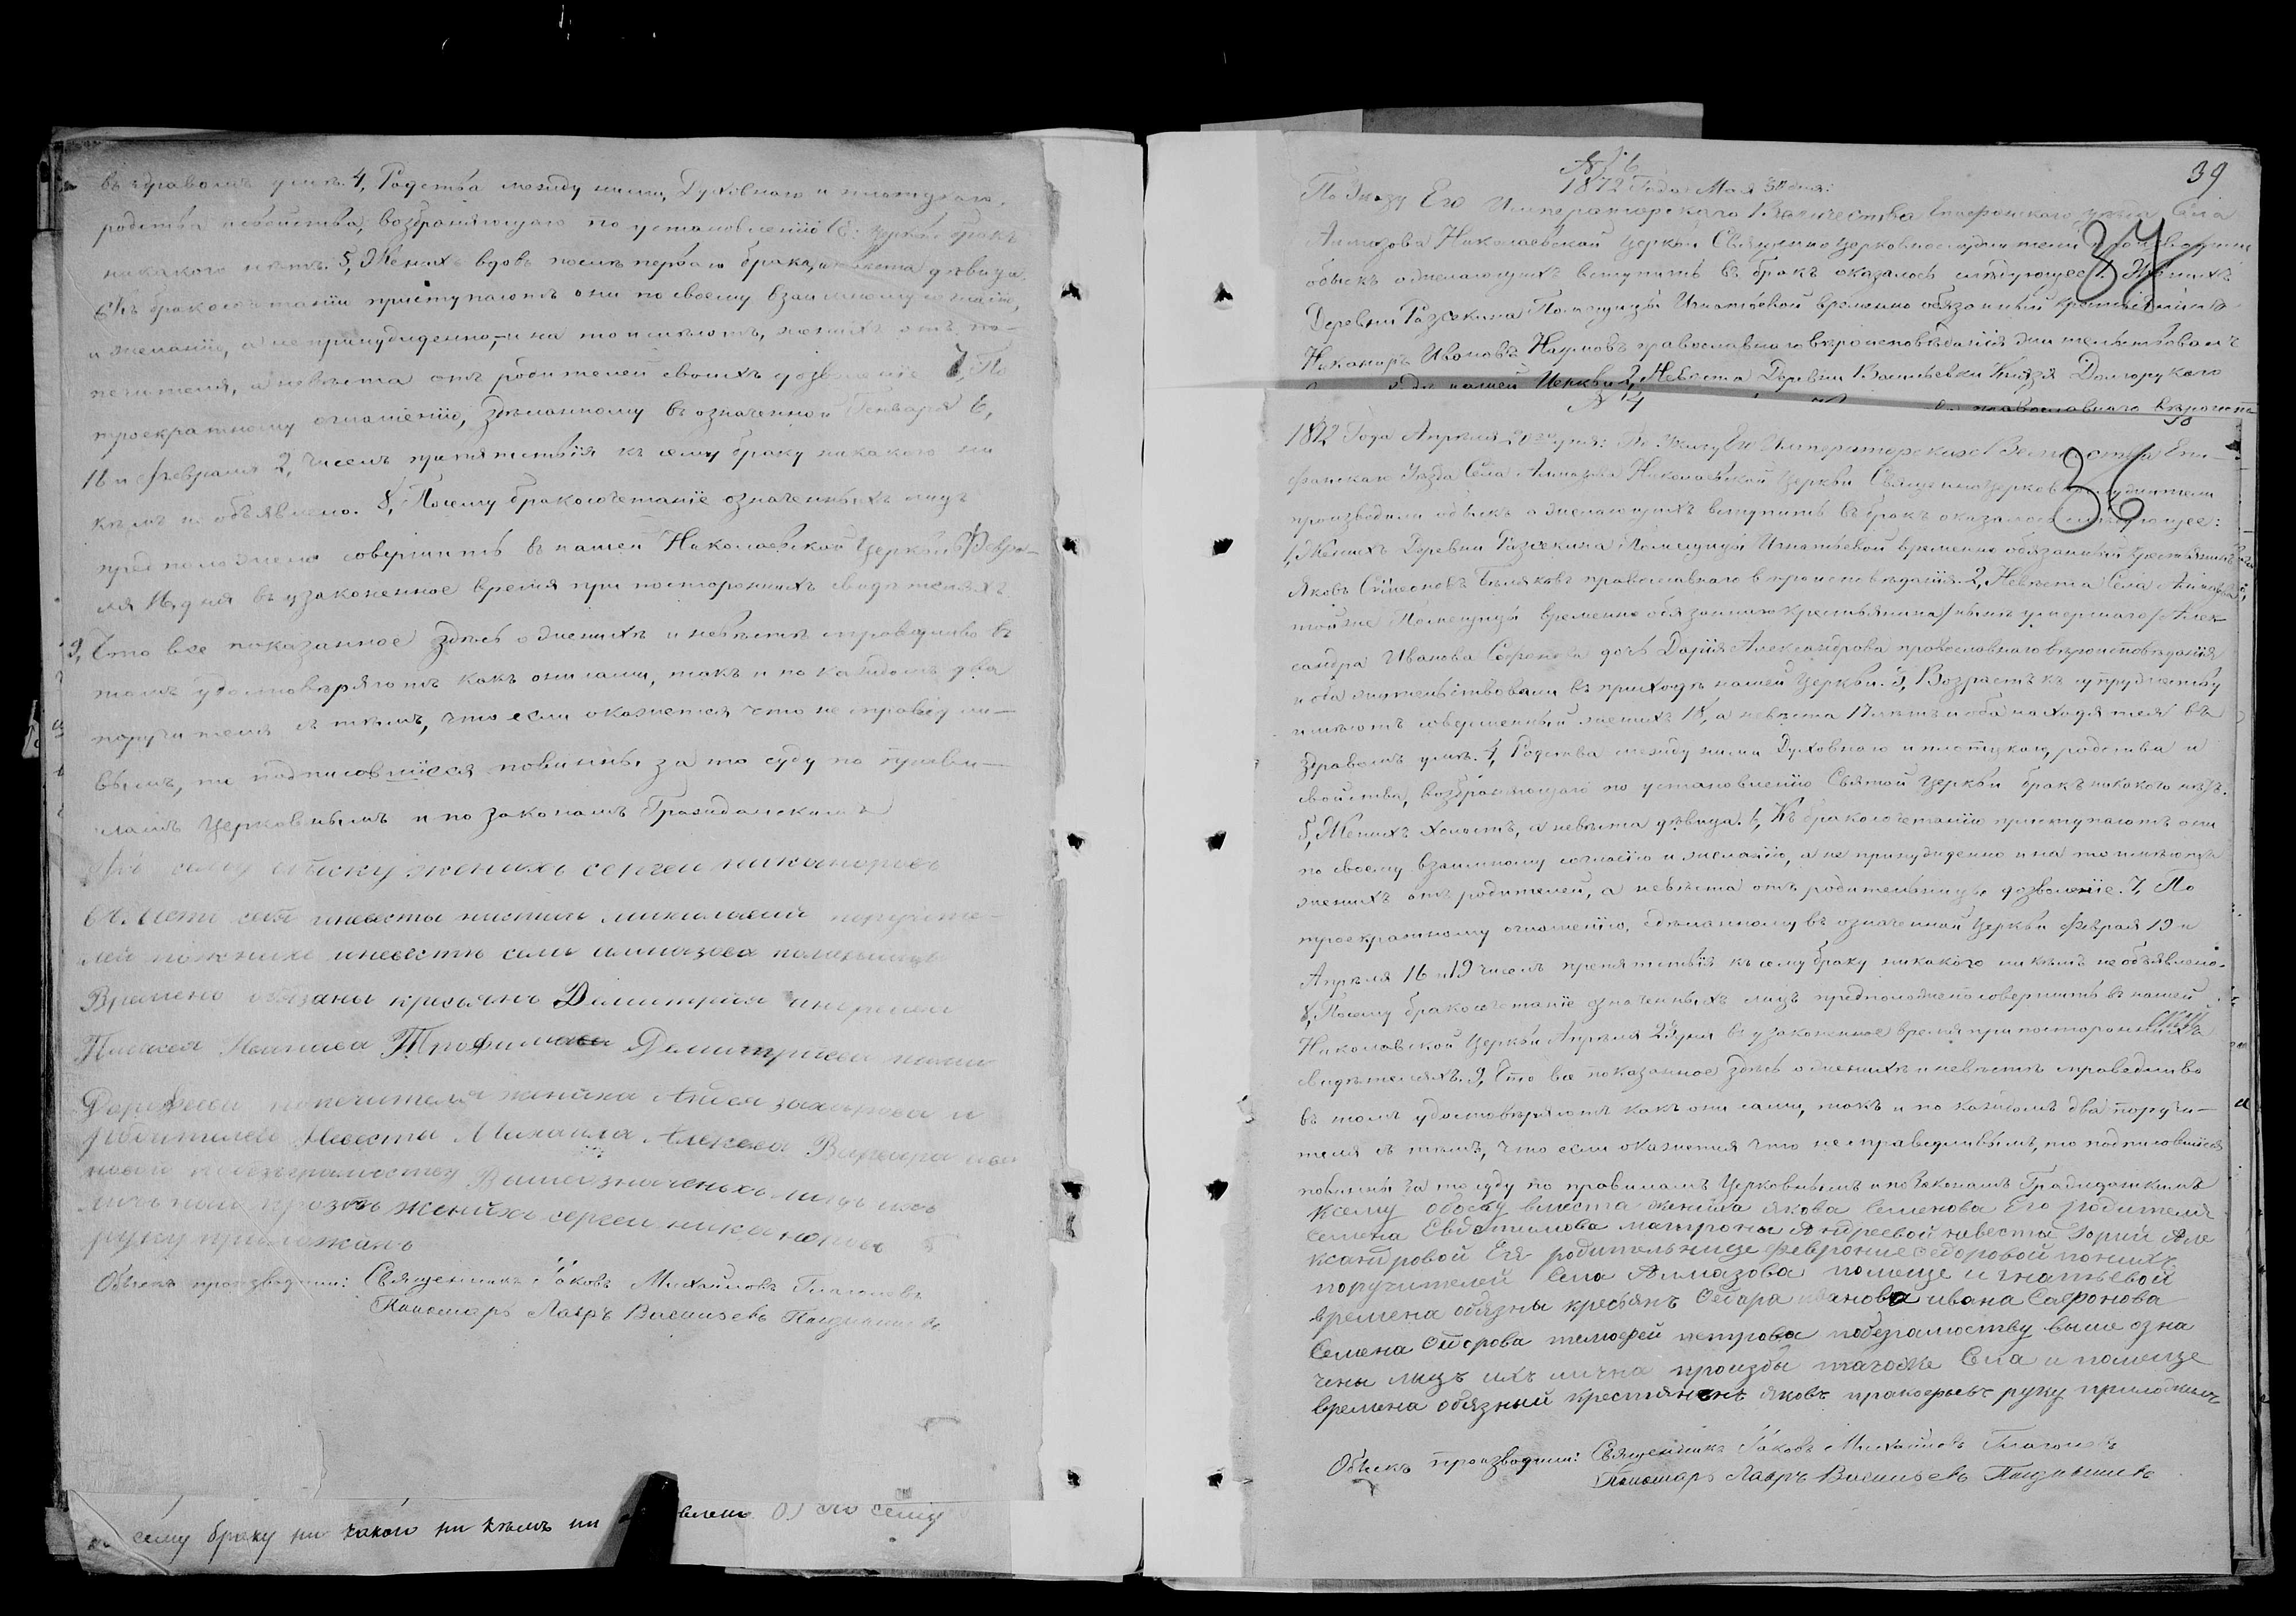 въ здравомъ умѣ. 4, Родства между ними, Духовнаго и плотскаго,
родства и свойства, возбраняющаго по установленію Св. Церкви бракъ
никакого нѣтъ. 5, Женихъ вдовъ послѣ перваго брака, а невѣста дѣвица.
6, Къ бракосочетанію приступаютъ они по своему взаимному согласію,
и желанію, а не принужденно, и на то имѣютъ, женихъ отъ по-
печителя, а невѣста отъ родителей своихъ дозволеніе 7, По
троекратному оглашенію, здѣланному въ означенной Генваря 6,
16 и февраля 2, чиселъ препятствія къ сему браку никакого ни
кѣмъ не объявлено. 8, Посему бракосочетаніе означенныхъ лицъ
предположено совершить въ нашей Николаевской Церкви Февра-
ля дня въ узаконенное время при постороннихъ свидѣтеляхъ.
9, Что все показанное здѣсь о женихѣ и невѣстѣ справедливо въ
томъ удостовѣряютъ какъ они сами, такъ и по каждомъ два
поручителя съ тѣмъ, что если окажется что не справедли-
вымъ, то подписовшіеся повинны за то суду по прави-
ламъ Церковнымъ и по законамъ Гражданскимъ
сему обыску женихъ сергеи никаноровъ
поручите-
лей по женихе и невесте села алмазова помещицы
Времено обязаны кресьянъ Димитрия андреева
Ивонова Трофимова Димитриева
попечителя жениха захарова и
родителей Невесты Михаила Алексева Варвара
по безграмоству Вышеозначеныхъ лицъ ихъ
прозбе женихъ сергеи никаноровъ
руку приложилъ
Обыскъ производили: Священникъ Іаковъ Михайловъ Глаголевъ
Пономарь Лавръ Васильевъ
сему браку ни какого ни кѣмъ не сему
№ 6
1872 Года Мая дня:
39
По Указу Его Императорскаго Величества Епифанскаго уѣзда Села
Алмазова Николаевской Церкви Священноцерковнослужители производили
37
обыскъ о желающихъ вступить въ бракъ оказалось слѣдующее: 1, Женихъ
Деревни Разсекина Помещицы Игнатьевой временно обязанный крестьянинъ
Никаноръ Ивановъ Наумовъ православнаго вѣроисповѣданія жительствовалъ
нашей Церкви 2, Невѣста Деревни Васильевки Князя Долгорукаго
православнаго
№ 4
1872 Года Апрѣля дня: По Указу Его Императорскаго Величества Епи-
36
фанскаго Уѣзда Села Алмазова Николаевской Церкви Священноцерковнослужители
производили обыскъ о желающихъ вступить въ бракъ оказалось слѣдующее:
1, Женихъ Деревни Разсекина Помещицы Игнатьевой временно обязанный крестьянинъ
Яковъ Симеоновъ Бѣляковъ православнаго вѣроисповѣданія. 2, Невѣста Села Алмазова
той же Помещицы временно обязаннаго крестьянина /нынѣ умершаго/ Алек-
сандра Иванова Сафонова дочь Дарія Александрова православнаго вѣроисповѣданія
и оба жительствовали въ приходѣ нашей Церкви. 3, Возрастъ къ супружеству
имѣютъ совершенный женихъ 18, а невѣста 17 лѣтъ и оба находятся въ
здравомъ умѣ. 4, Родства между ними Духовнаго и плотскаго, родства и
свойства, возбраняющаго по установленію Святой Церкви бракъ никакого нѣтъ.
5, Женихъ холостъ, а невѣста дѣвица. 6, Къ бракосочетанію приступаютъ они
по своему взаимному согласію и желанію, а не принужденно и на то имѣютъ
женихъ отъ родителей, а невѣста отъ родительницы дозволеніе. 7, По
троекратному оглашенію, сдѣланному въ означенной Церкви Февраля 19 и
Апрѣля 16 и 19 чиселъ препятствія къ сему браку никакого ни кѣмъ не объявлено.
8, Посему бракосочетаніе означенныхъ лицъ предположено совершить въ нашей
Николаевской Церкви Апрѣля дня въ узаконенное время при постороннихъ
свидѣтеляхъ. 9, Что все показанное здѣсь о женихѣ и невѣстѣ справедливо
въ томъ удостовѣряютъ какъ они сами, такъ и по каждомъ два поручи-
теля съ тѣмъ, что если окажется что не справедливымъ, то подписовшіеся
повинны за то суду по правиламъ Церковнымъ и по Законамъ Гражданскимъ
Ксему обоску вместа жениха якова семенова Его родителя
семена Евдотимова матроны Андреевой невесты Дории Але
ксандровой Ея родительнице февроние федоровой поних
поручителей Села Алмазова помеще игнатьевой
времена обязны кресьянъ Федора иванова ивана Сафронова
Семена Федорова тимофей петрова побезграмоству выше озна
чены лицъ ихъ лична произбы тагоже Села и помеще
времена обязный крестянинъ яковъ пракофьевъ руку приложилъ
Обыскъ производили: Священникъ Іаковъ Михайловъ Глаголевъ
Пономарь Лавръ Васильевъ